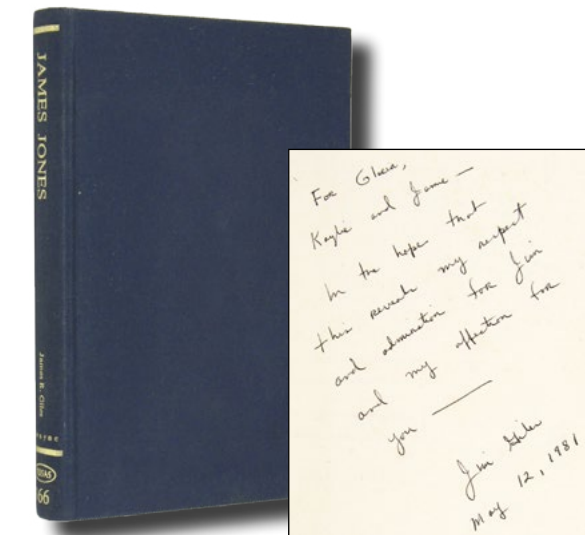 JAMES JONES
James R. Giles
Twayne
TUSAS
366
For Gloria,
Kaylie and Jamie —
In the hope that
this reveals my respect
and admiration for Jim
and my affection for
you —
Jim Giles
May 12, 1981